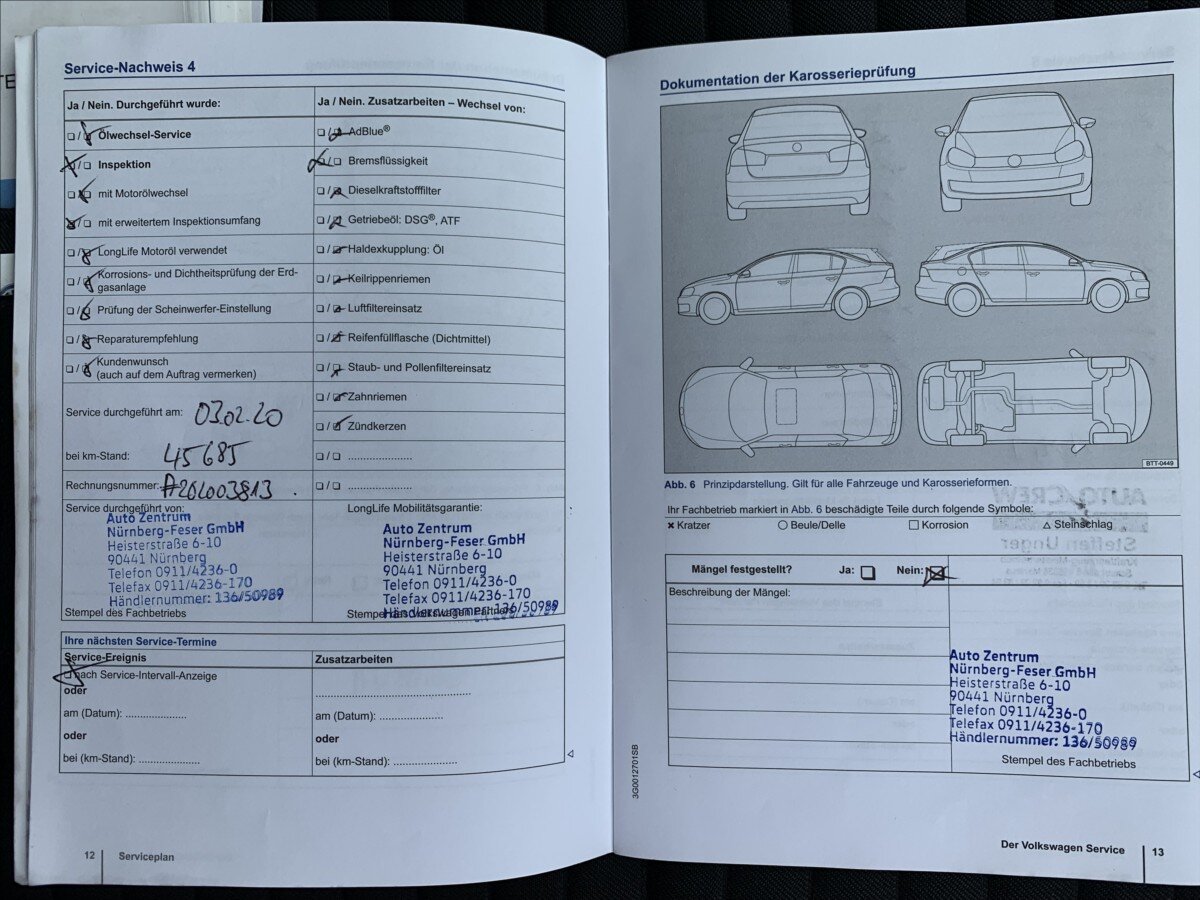 Service-Nachweis 4
Ja / Nein. Durchgeführt wurde:
Ölwechsel-Service
Inspektion
mit Motorölwechsel
mit erweitertem Inspektionsumfang
LongLife Motoröl verwendet
Korrosions- und Dichtheitsprüfung der Erd-
gasanlage
Prüfung der Scheinwerfer-Einstellung
Reparaturempfehlung
Kundenwunsch
(auch auf dem Auftrag vermerken)
Service durchgeführt am: 03.02.20
bei km-Stand: 45685
Rechnungsnummer: A202003813
Ja / Nein. Zusatzarbeiten – Wechsel von:
AdBlue®
Bremsflüssigkeit
Dieselkraftstofffilter
Getriebeöl: DSG®, ATF
Haldexkupplung: Öl
Keilrippenriemen
Luftfiltereinsatz
Reifenfüllflasche (Dichtmittel)
Staub- und Pollenfiltereinsatz
Zahnriemen
Zündkerzen
Service durchgeführt von:
Auto Zentrum
Nürnberg-Feser GmbH
Heisterstraße 6-10
90441 Nürnberg
Telefon 0911/4236-0
Telefax 0911/4236-170
Händlernummer: 136/50989
Stempel des Fachbetriebs
LongLife Mobilitätsgarantie:
Auto Zentrum
Nürnberg-Feser GmbH
Heisterstraße 6-10
90441 Nürnberg
Telefon 0911/4236-0
Telefax 0911/4236-170
Händlernummer: 136/50989
Stempel des Volkswagen Partners
Ihre nächsten Service-Termine
Service-Ereignis
nach Service-Intervall-Anzeige
oder
am (Datum): .....................
oder
bei (km-Stand): .....................
Zusatzarbeiten
am (Datum): .....................
oder
bei (km-Stand): .....................
12 Serviceplan
Dokumentation der Karosserieprüfung
BTT-0449
Abb. 6 Prinzipdarstellung. Gilt für alle Fahrzeuge und Karosserieformen.
Ihr Fachbetrieb markiert in Abb. 6 beschädigte Teile durch folgende Symbole:
× Kratzer ○ Beule/Delle □ Korrosion △ Steinschlag
Mängel festgestellt? Ja: Nein:
Beschreibung der Mängel:
Auto Zentrum
Nürnberg-Feser GmbH
Heisterstraße 6-10
90441 Nürnberg
Telefon 0911/4236-0
Telefax 0911/4236-170
Händlernummer: 136/50989
Stempel des Fachbetriebs
3G0012701SB
Der Volkswagen Service 13